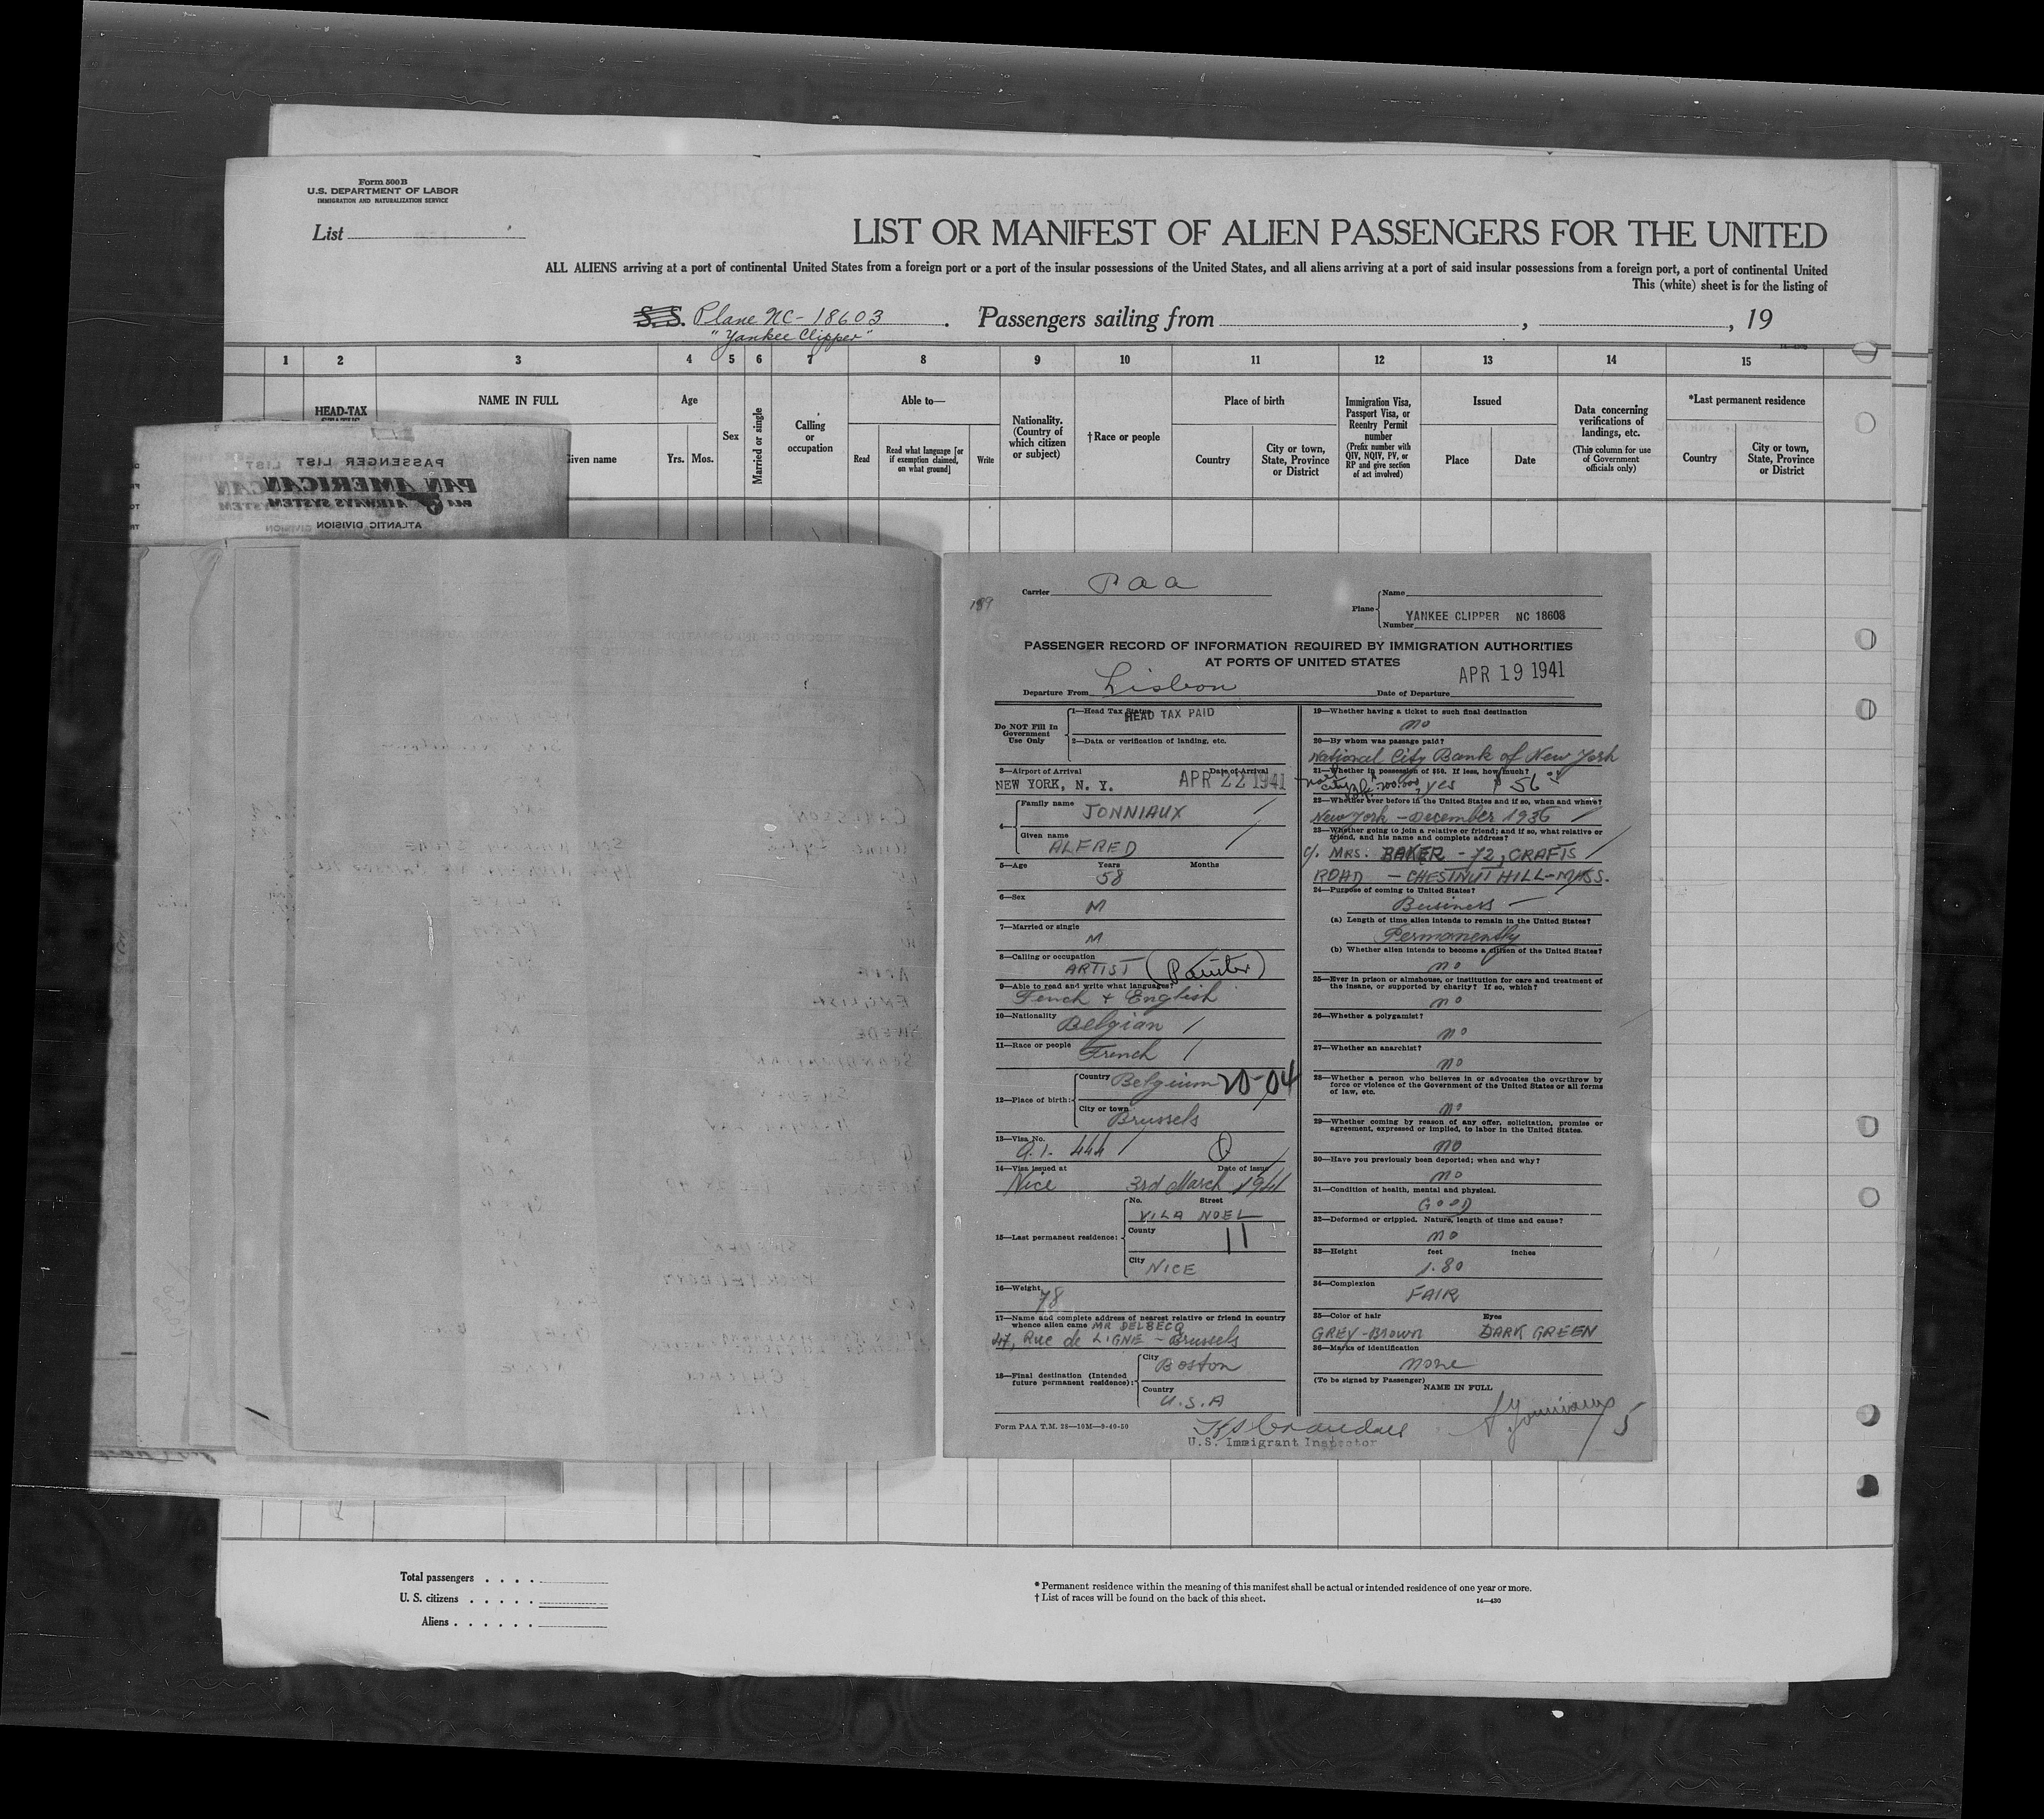 Form 500B
U.S. DEPARTMENT OF LABOR
IMMIGRATION AND NATURALIZATION SERVICE
List
LIST OR MANIFEST OF ALIEN PASSENGERS FOR THE UNITED
ALL ALIENS arriving at a port of continental United States from a foreign port or a port of the insular possessions of the United States, and all aliens arriving at a port of said insular possessions from a foreign port, a port of continental United
This (white) sheet is for the listing of
S.S. Plane NC-18603 . Passengers sailing from , , 19
"Yankee Clipper"
1 2 3 4 5 6 7 8 9 10 11 12 13 14 15
HEAD-TAX
NAME IN FULL
Given name
Age
Yrs. Mos.
Sex
Married or single
Calling or occupation
Able to—
Read
Read what language [or if exemption claimed, on what ground]
Write
Nationality. (Country of which citizen or subject)
†Race or people
Place of birth
Country
City or town, State, Province or District
Immigration Visa, Passport Visa, or Reentry Permit number
(Prefix number with QIV, NQIV, PV, or RP and give section of act involved)
Issued
Place
Date
Data concerning verifications of landings, etc.
(This column for use of Government officials only)
*Last permanent residence
Country
City or town, State, Province or District
PASSENGER LIST
PAN AMERICAN
PAA AIRWAYS SYSTEM
ATLANTIC DIVISION
Carrier PAA
Plane
Name
Number YANKEE CLIPPER NC 18603
PASSENGER RECORD OF INFORMATION REQUIRED BY IMMIGRATION AUTHORITIES
AT PORTS OF UNITED STATES
Departure From Lisbon
Date of Departure APR 19 1941
Do NOT Fill In Government Use Only
1—Head Tax Status HEAD TAX PAID
2—Data or verification of landing, etc.
3—Airport of Arrival Date of Arrival
NEW YORK, N. Y. APR 22 1941
4—
Family name JONNIAUX
Given name ALFRED
5—Age Years Months
58
6—Sex
M
7—Married or single
M
8—Calling or occupation
ARTIST (Painter)
9—Able to read and write what languages?
Fench + English
10—Nationality
Belgian
11—Race or people
French
12—Place of birth:
Country Belgium 20-04
City or town
Brussels
13—Visa No.
Q.I. 444
14—Visa issued at Date of issue
Nice 3rd March 1941
15—Last permanent residence:
No. Street
VILA NOEL
County
11
City NICE
16—Weight
78
17—Name and complete address of nearest relative or friend in country
whence alien came MR DELBECQ
47, Rue de LIGNE - Brussels
18—Final destination (Intended future permanent residence):
City Boston
Country
U.S.A
Form PAA T.M. 28—10M—9-40-50
U.S. Immigrant Inspector
19—Whether having a ticket to such final destination
no
20—By whom was passage paid?
National City Bank of New York
21—Whether in possession of $50. If less, how much?
yes $56
22—Whether ever before in the United States and if so, when and where?
New York - December 1936
23—Whether going to join a relative or friend; and if so, what relative or
friend, and his name and complete address?
c/. MRS. BAKER - 72, CRAFTS
ROAD - CHESTNUT HILL - MASS.
24—Purpose of coming to United States?
Business
(a) Length of time alien intends to remain in the United States?
Permanently
(b) Whether alien intends to become a citizen of the United States?
no
25—Ever in prison or almshouse, or institution for care and treatment of
the insane, or supported by charity? If so, which?
no
26—Whether a polygamist?
no
27—Whether an anarchist?
no
28—Whether a person who believes in or advocates the overthrow by
force or violence of the Government of the United States or all forms
of law, etc.
no
29—Whether coming by reason of any offer, solicitation, promise or
agreement, expressed or implied, to labor in the United States.
no
30—Have you previously been deported; when and why?
no
31—Condition of health, mental and physical.
GOOD
32—Deformed or crippled. Nature, length of time and cause?
no
33—Height feet inches
1.80
34—Complexion
FAIR
35—Color of hair Eyes
GREY-Brown DARK GREEN
36—Marks of identification
none
(To be signed by Passenger)
NAME IN FULL
A Jonniaux
5
Total passengers
U. S. citizens
Aliens
* Permanent residence within the meaning of this manifest shall be actual or intended residence of one year or more.
† List of races will be found on the back of this sheet.
14—430